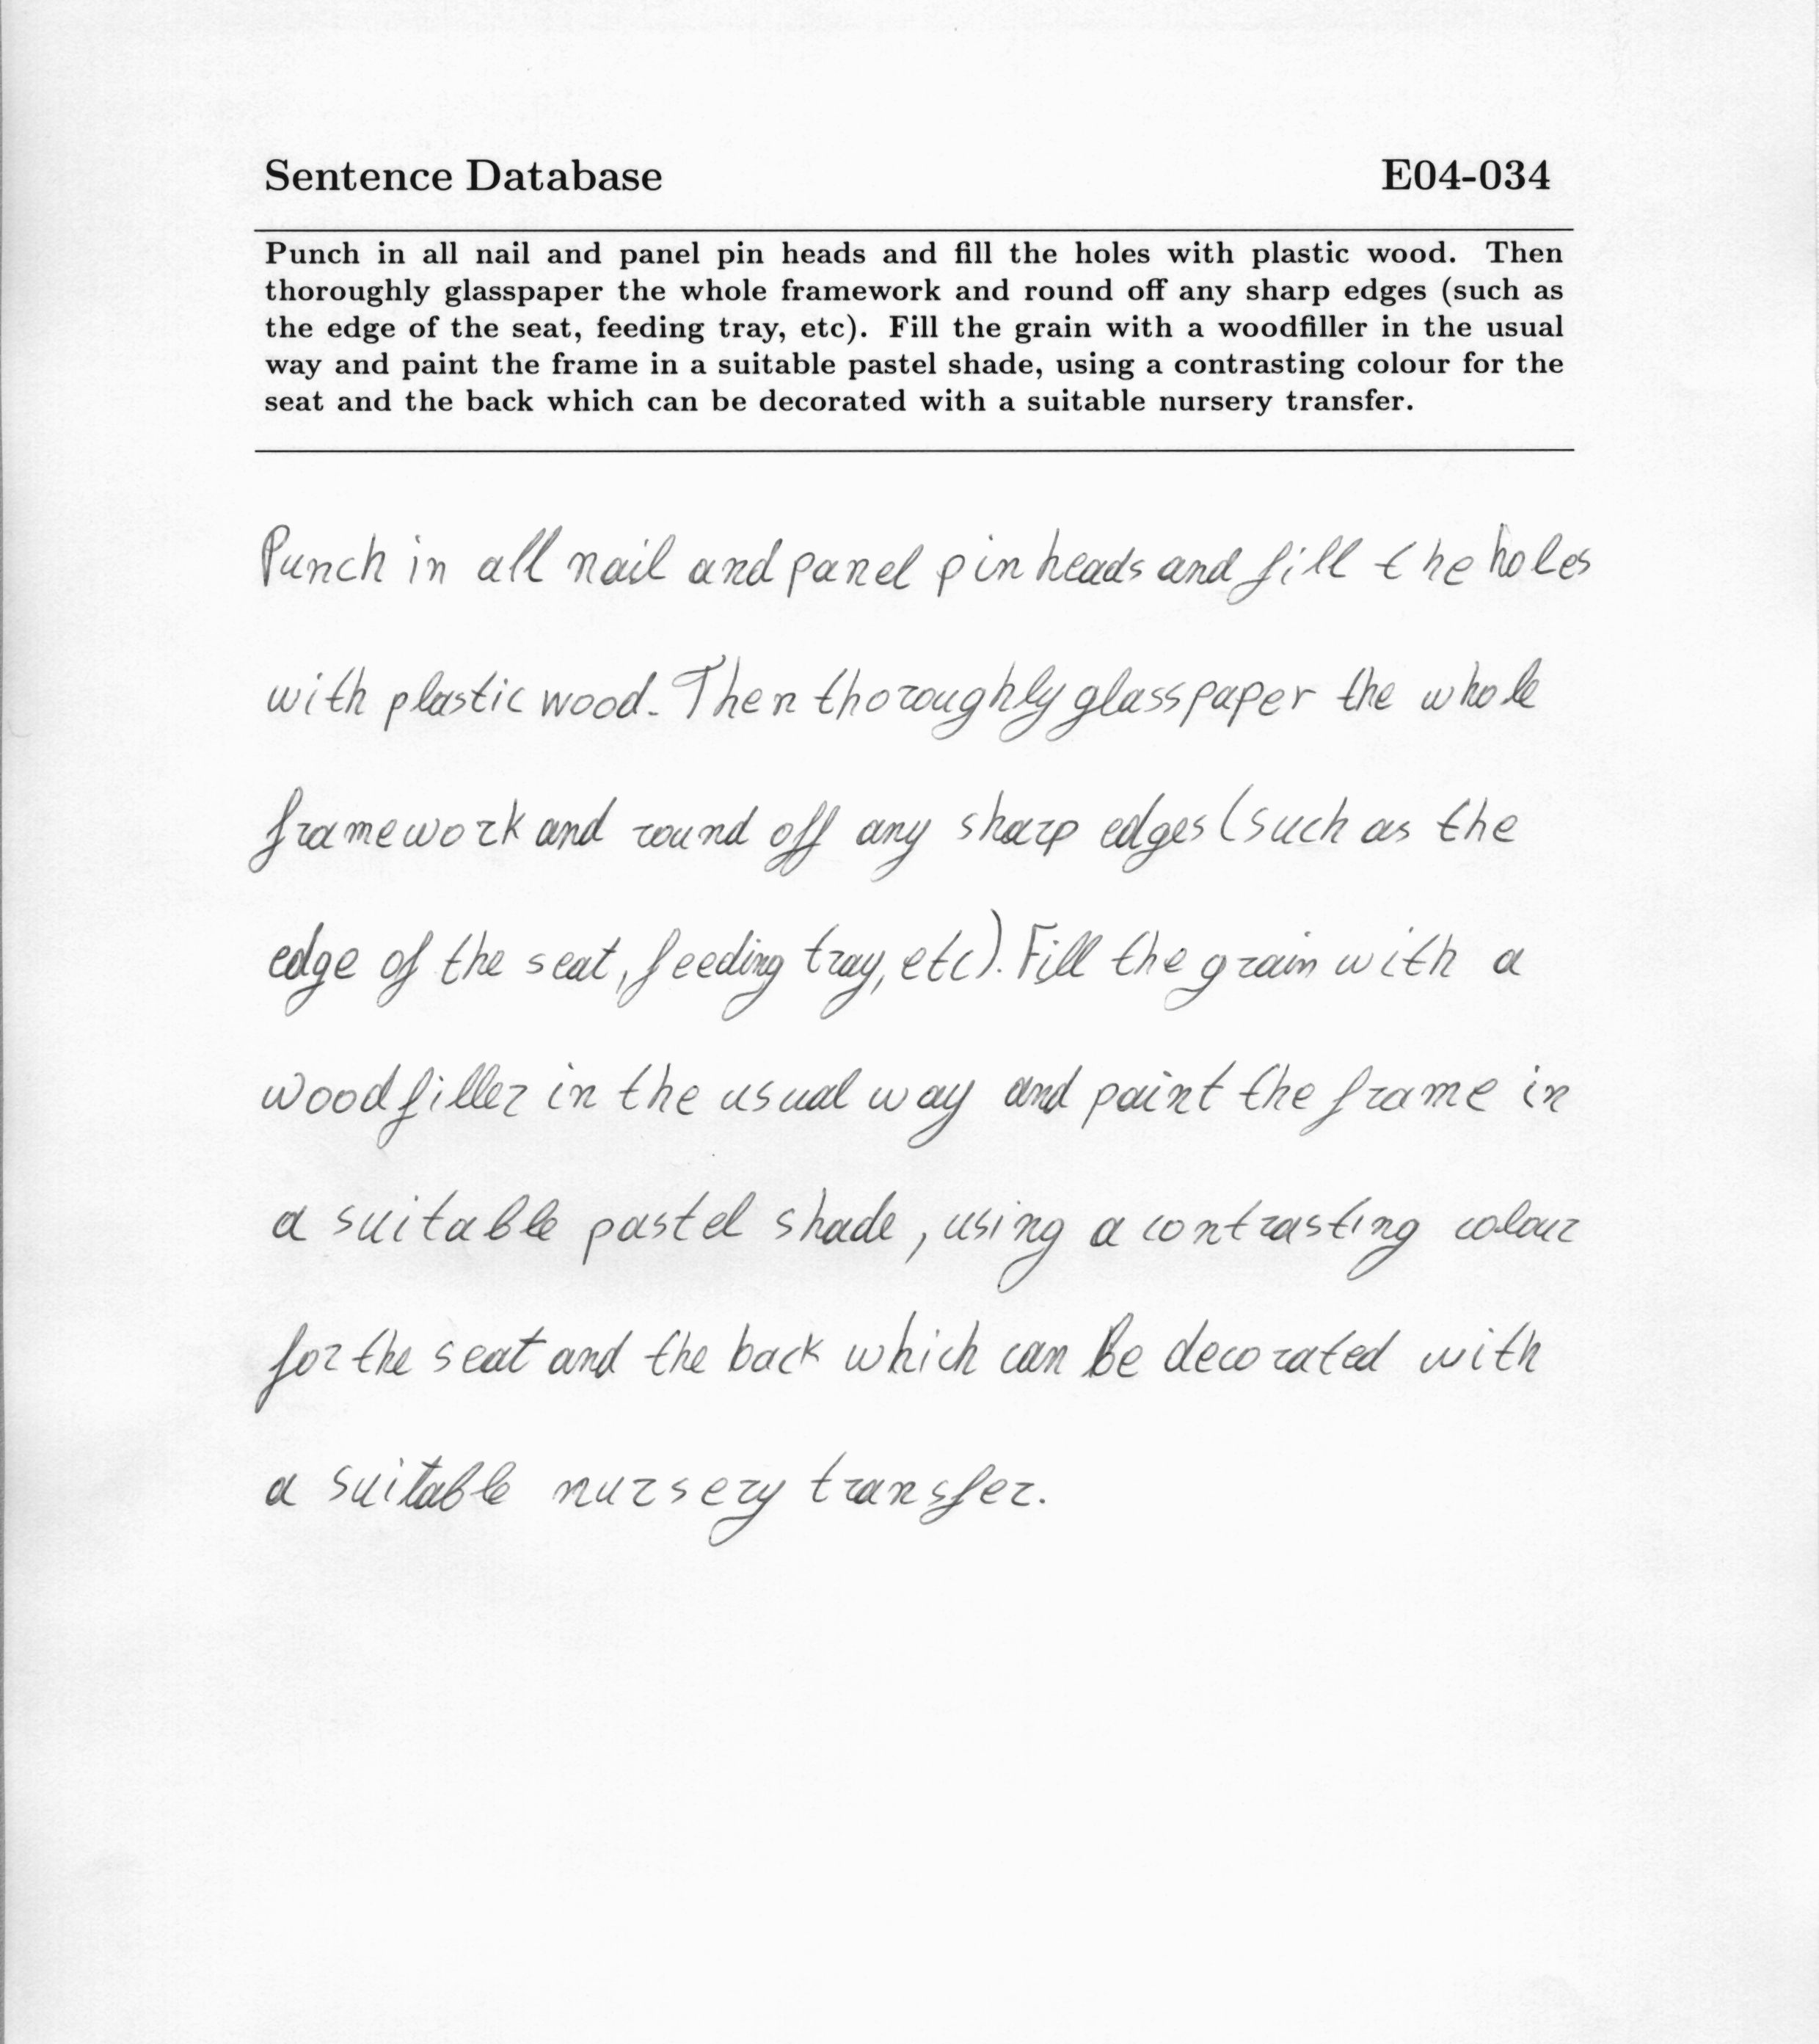 Sentence Database E04-034
Punch in all nail and panel pin heads and fill the holes with plastic wood. Then
thoroughly glasspaper the whole framework and round off any sharp edges (such as
the edge of the seat, feeding tray, etc). Fill the grain with a woodfiller in the usual
way and paint the frame in a suitable pastel shade, using a contrasting colour for the
seat and the back which can be decorated with a suitable nursery transfer.
Punch in all nail and panel pin heads and fill the holes
with plastic wood. Then thoroughly glasspaper the whole
framework and round off any sharp edges (such as the
edge of the seat, feeding tray, etc). Fill the grain with a
woodfiller in the usual way and paint the frame in
a suitable pastel shade, using a contrasting colour
for the seat and the back which can be decorated with
a suitable nursery transfer.